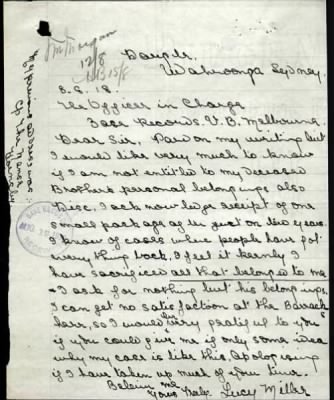 Mr Morgan
12/8
15/8
Wahroonga Sydney.
8. 8. 18.
The Officer in Charge
Base Records V. B. Melbourne
Dear Sir, Pardon my writing but
I would like very much to know
if I am not entitled to my deceased
Brothers personal belongings also
Disc, I acknowledge receipt of one
small package just on two years
I know of cases where people have got
every thing back, I feel it keenly I
have sacrificed all that belonged to me
& I ask for nothing but his belongings
I can get no satisfaction at the Barrack
here, so I would be very gratified to you
if you could give me if only some idea
why my case is like this. Apologising
if I have taken up much of your time.
Believe me
Yours Truly, Lucy Miller
My permanent address was